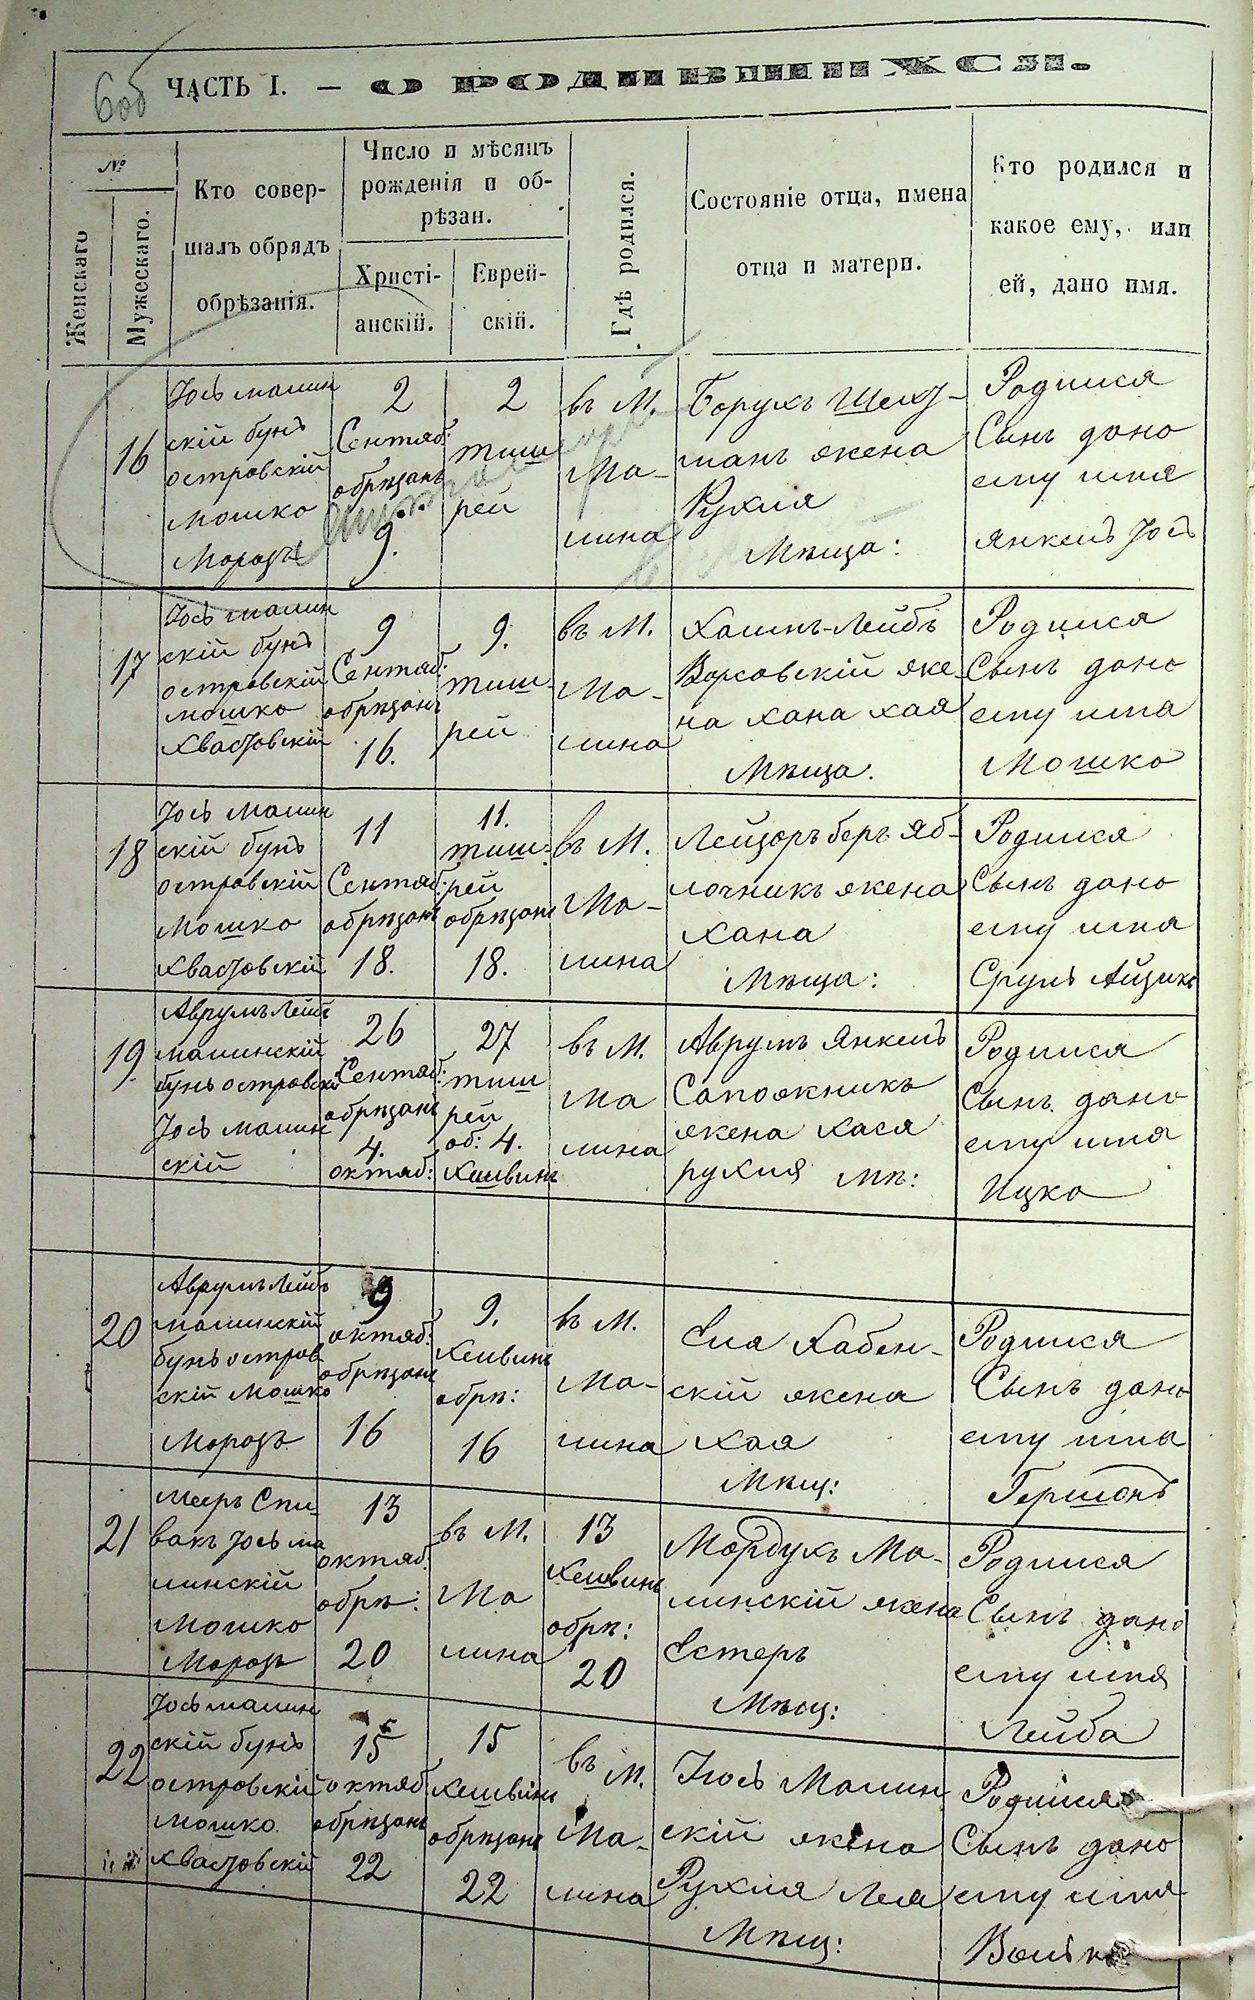 6об
ЧАСТЬ I. — О РОДИВШИХСЯ.
№
Женскаго
Мужескаго.
Кто совер-
шалъ обрядъ
обрѣзанія.
Число и мѣсяцъ
рожденія и об-
рѣзан.
Христі-
анскій.
Еврей-
скій.
Гдѣ родился.
Состояніе отца, имена
отца и матери.
Кто родился и
какое ему, или
ей, дано имя.
16
Іось малин
скій бунъ
островскій
Мошко
Морозъ
2
Сентяб:
обрѣзанъ
9.
2
тиш
рей
въ М.
Ма-
лина
Борухъ
жена
Рухля
Мѣща:
Родился
Сынъ дано
ему имя
Янкель Іось
17
Іось малин
скій бунъ
островскій
мошко
Хвастовскій
9
Сентяб:
обрѣзанъ
16.
9.
тиш-
рей
въ М.
Ма-
лина
Хаимъ-Лейбъ
Варсавскій же-
на хана хая
Мѣща.
Родился
Сынъ дано
ему имя
Мошко
18
Іось малин
скій бунъ
островскій
Мошко
Хвастовскій
11
Сентяб:
обрѣзанъ
18.
11.
тиш:
рей
обрѣзанъ
18.
въ М.
Ма-
лина
Лейзоръ беръ яб-
лочникъ жена
хана
Мѣща:
Родился
Сынъ дано
ему имя
Сруль Айзикъ
19.
Аврумъ Лейбъ
малинскій
бунъ островскій
Іось малин
скій
26
Сентяб:
обрѣзанъ
4.
октяб:
27
тиш
рей
об: 4.
Хешвинъ
въ М.
Ма
лина
Аврумъ Янкель
Сапожникъ
жена хася
рухля мѣ:
Родился
Сынъ дано
ему имя
Ицко
20
Аврумъ Лейбъ
малинскій
бунъ остров
скій мошко
Морозъ
9
октяб:
обрѣзанъ
16
9.
Хешвинъ
обрѣ:
16
въ М.
Ма-
лина
Ела Хабен-
скій жена
хая
Мѣщ:
Родился
Сынъ дано
ему имя
Гершонъ
21
Мееръ Спи-
вакъ Іось ма
линскій
Мошко
Морозъ
13
октяб:
обрѣ:
20
въ М.
Ма
лина
13
Хешвинъ
обрѣ:
20
Мордухъ Ма-
линскій жена
Естеръ
Мѣщ:
Родился
Сынъ дано
ему имя
Лейба
22
Іось малин
скій бунъ
островскій
мошко
Хвастовскій
15
октяб
обрѣзанъ
22
15
Хешвинъ
обрѣзанъ
22
въ М.
Ма-
лина
Іось Малин
скій жена
Рухля Лея
Мѣщ:
Родился
Сынъ дано
ему имя